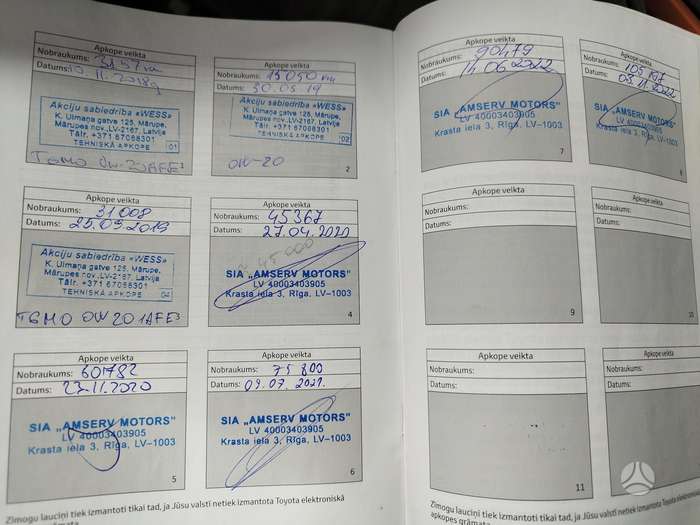 Apkope veikta
Nobraukums: 3157 km
Datums: 10.11.2018g
Akciju sabiedrība «WESS»
K. Ulmaņa gatve 125, Mārupe,
Mārupes nov., LV-2167, Latvija
Tālr. +371 67068301
TEHNISKĀ APKOPE 01
TGMO OW-20AFE
Apkope veikta
Nobraukums: 15050 km
Datums: 30.05.19
Akciju sabiedrība «WESS»
K. Ulmaņa gatve 125, Mārupe,
Mārupes nov., LV-2167, Latvija
Tālr. +371 67068301
TEHNISKĀ APKOPE 02
OW-20
2
Apkope veikta
Nobraukums: 31008
Datums: 25.09.2019
Akciju sabiedrība «WESS»
K. Ulmaņa gatve 125, Mārupe,
Mārupes nov., LV-2167, Latvija
Tālr. +371 67068301
TEHNISKĀ APKOPE 04
TGMO OW201AFE
Apkope veikta
Nobraukums: 45367
Datums: 27.04.2020
45000
SIA „AMSERV MOTORS"
LV 40003403905
Krasta iela 3, Rīga, LV–1003
4
Apkope veikta
Nobraukums: 601782
Datums: 23.11.2020
SIA „AMSERV MOTORS"
LV 40003403905
Krasta iela 3, Rīga, LV–1003
5
Apkope veikta
Nobraukums: 75 800
Datums: 09.07.2021.
SIA „AMSERV MOTORS"
LV 40003403905
Krasta iela 3, Rīga, LV–1003
6
Zīmogu lauciņi tiek izmantoti tikai tad, ja Jūsu valstī netiek izmantota Toyota elektroniskā
Apkope veikta
Nobraukums: 90479
Datums: 14.06.2022
SIA „AMSERV MOTORS"
LV 40003403905
Krasta iela 3, Rīga, LV–1003
7
Apkope veikta
Nobraukums: 105 197
Datums: 03.11.2022
SIA „AMSERV MOTORS"
LV 40003403905
Krasta iela 3, Rīga, LV–1003
8
Apkope veikta
Nobraukums:
Datums:
9
Apkope veikta
Nobraukums:
Datums:
10
Apkope veikta
Nobraukums:
Datums:
11
Apkope veikta
Nobraukums:
Datums:
Zīmogu lauciņi tiek izmantoti tikai tad, ja Jūsu valstī netiek izmantota Toyota elektroniskā
apkopes grāmata.